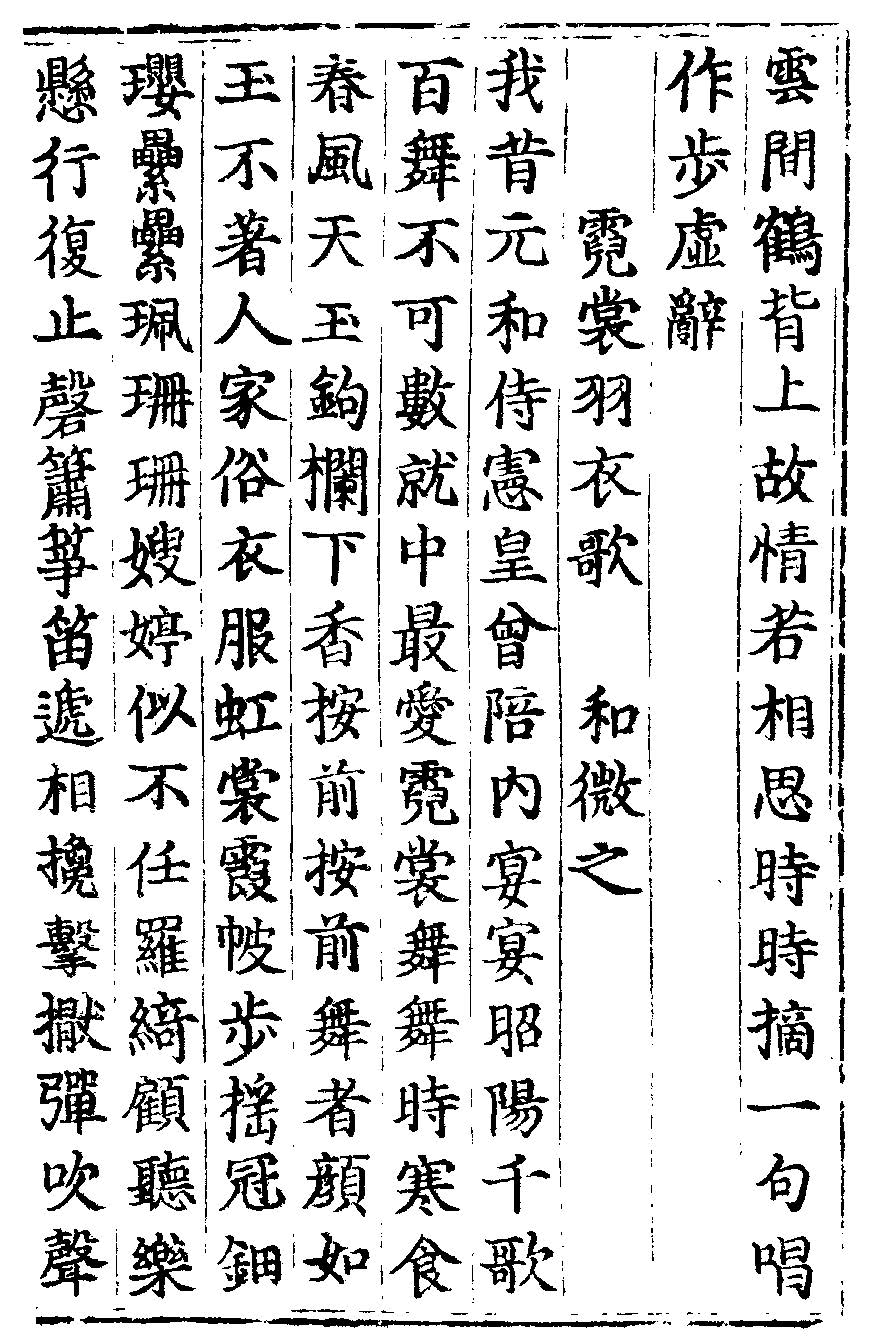 雲間鶴背上故情若相思時時摘一句唱
作步虛辭
霓裳羽衣歌　和微之
我昔元和侍憲皇曾陪內宴宴昭陽千歌
百舞不可數就中最愛霓裳舞舞時寒食
春風天玉鉤欄下香按前按前舞者顔如
玉不著人家俗衣服虹裳霞帔步揺冠鈿
瓔纍纍珮珊珊娉婷似不任羅綺顧聽樂
懸行復止磬簫筝笛遞相攙擊擫彈吹聲